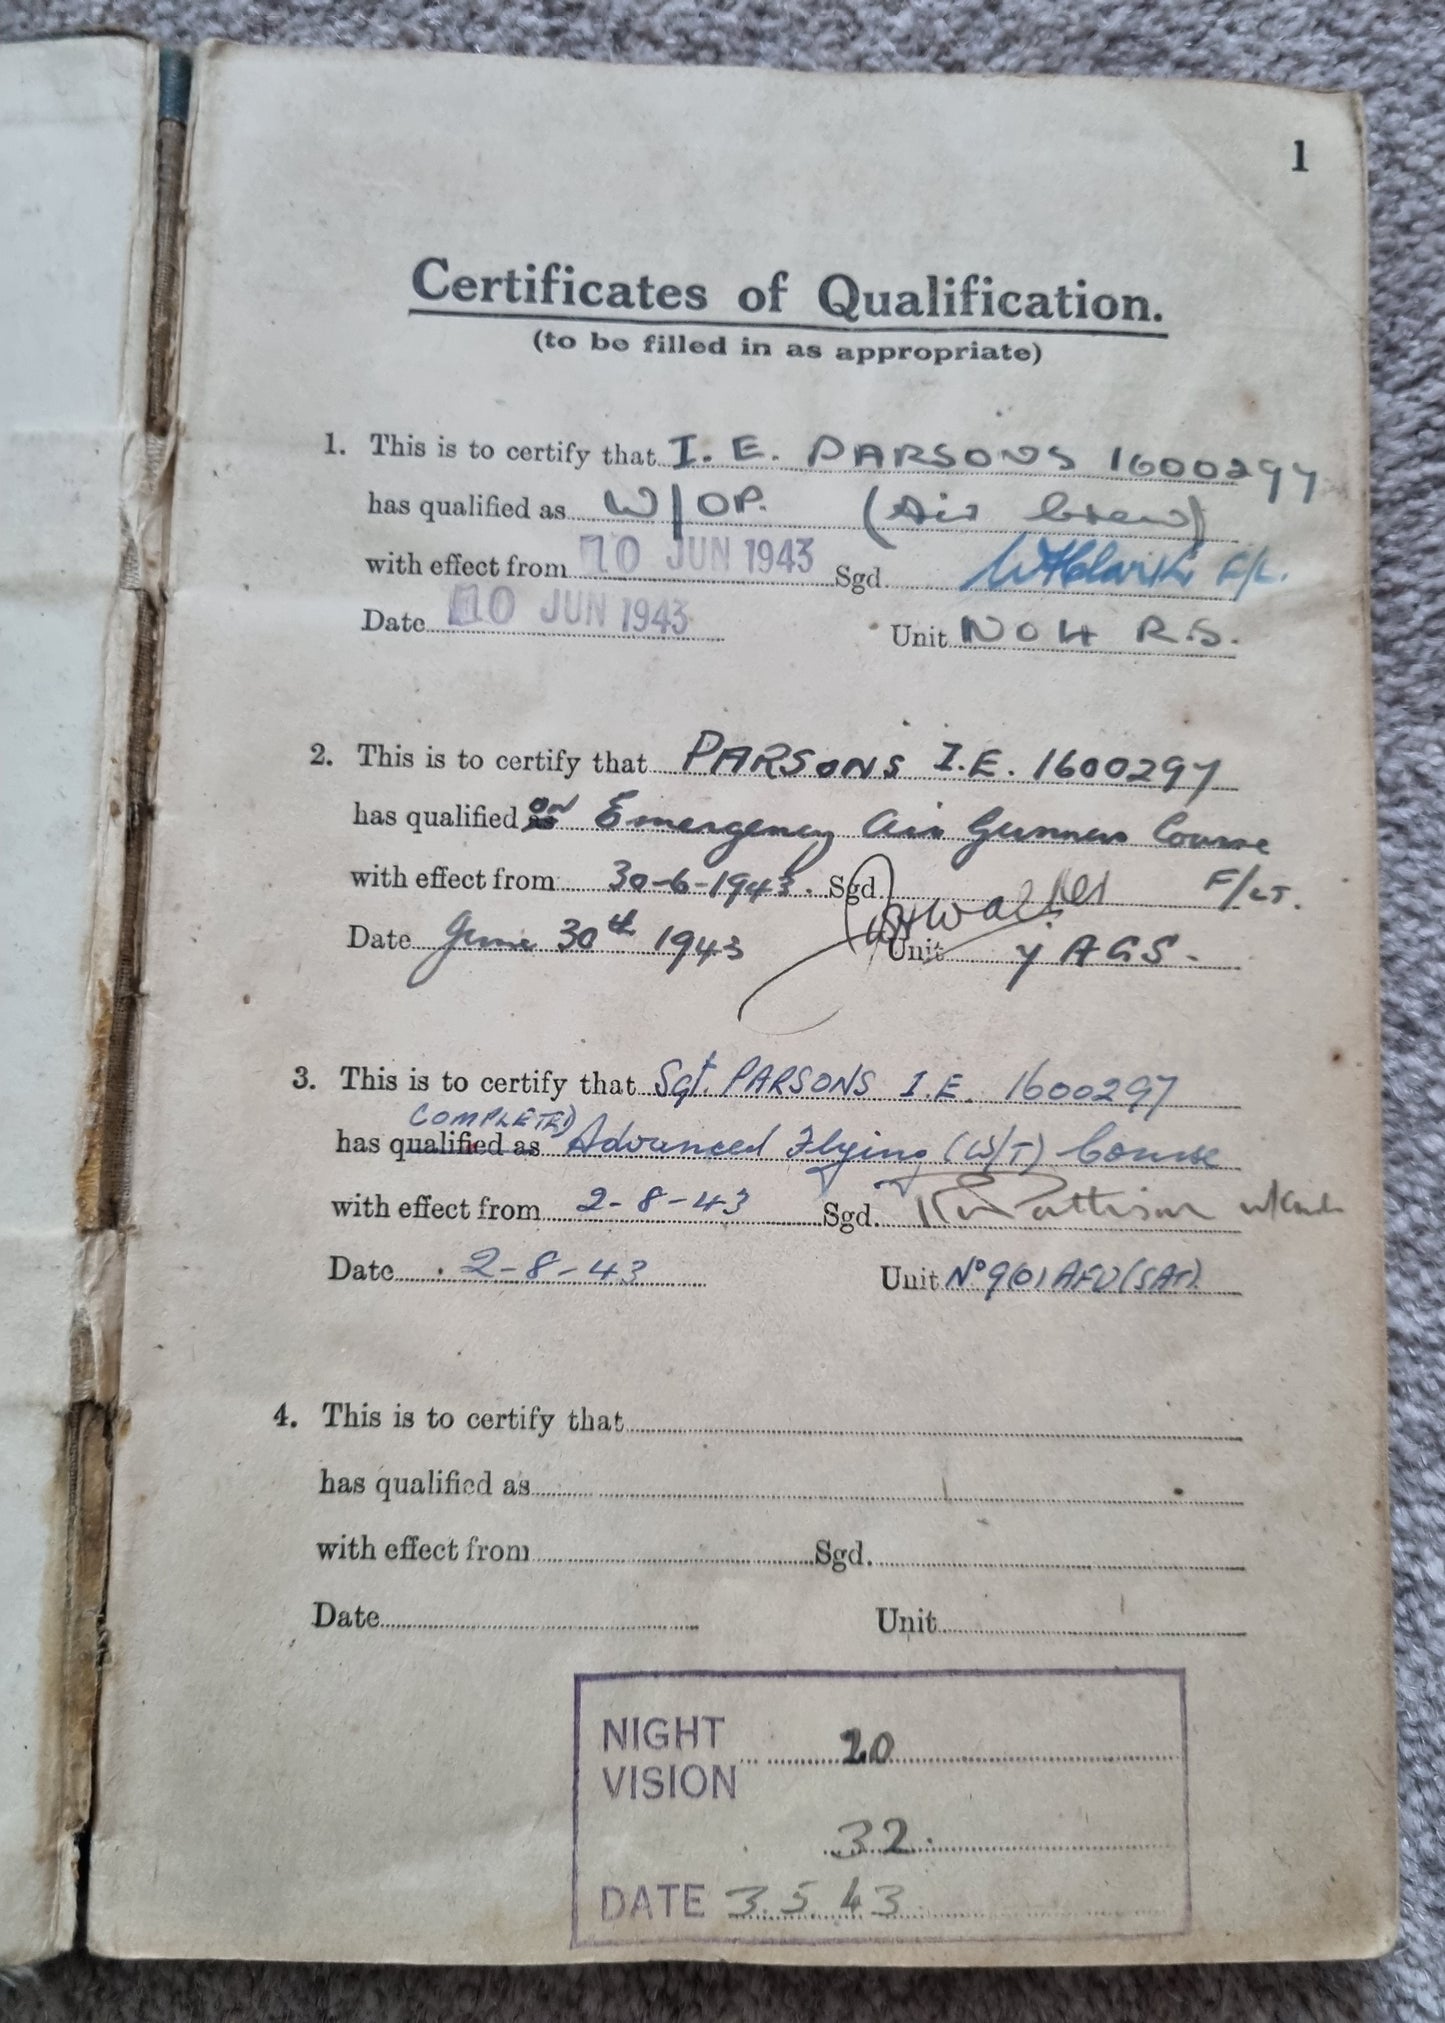 1
Certificates of Qualification.
(to be filled in as appropriate)
1. This is to certify that I. E. PARSONS 1600297
has qualified as W/OP. (Air Crew)
with effect from 10 JUN 1943 Sgd. F/L.
Date 10 JUN 1943 Unit No 4 R.S.
2. This is to certify that PARSONS I.E. 1600297
has qualified on Emergency Air Gunners Course
with effect from 30-6-1943. Sgd. Walker F/LT.
Date June 30th 1943 Unit 7 AGS.
3. This is to certify that Sgt. PARSONS I.E. 1600297
COMPLETED
has qualified as Advanced Flying (W/T) Course
with effect from 2-8-43 Sgd.
Date 2-8-43 Unit No 9(O) AFU (SAT).
4. This is to certify that
has qualified as
with effect from Sgd.
Date Unit
NIGHT
VISION 20
32.
DATE 3.5.43